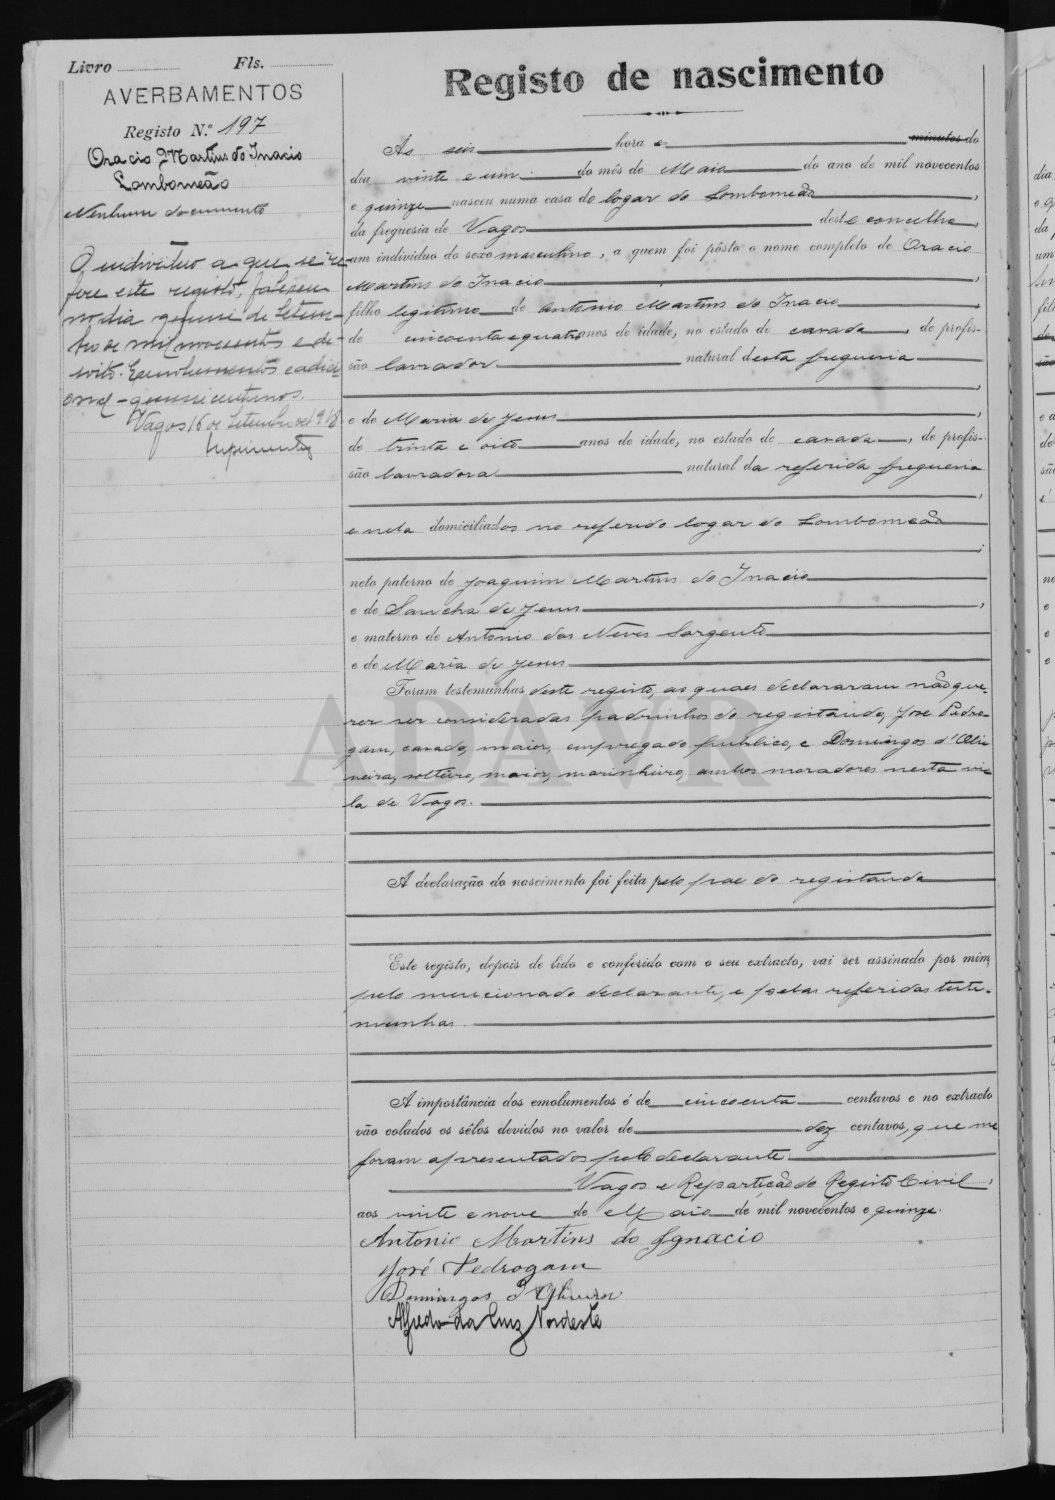 Livro Fls.
AVERBAMENTOS
Registo N.º 197
Oracio Martins do Inacio
Lombomeão
Nenhum documento
O individuo a que se re-
fere este registo, faleceu
no dia quinze de Setem-
bro de mil novecentos e de-
soito. Emolumentos
quinze centavos.
Vagos 16 de Setembro de 1918
Registo de nascimento
Ás seis hora e minutos do
dia vinte e um do mês de Maio do ano de mil novecentos
e quinze nasceu numa casa do logar do Lombomeão,
da freguesia de Vagos deste concelho,
um individuo do sexo masculino, a quem foi pôsto o nome completo de Oracio
Martins do Inacio,
filho legitimo de Antonio Martins do Inacio,
de cincoenta e quatro anos de idade, no estado de casado, de profis-
são lavrador natural desta freguesia
,
e de Maria de Jesus,
de trinta e oito anos de idade, no estado de casada, de profis-
são lavradora natural da referida freguesia
,
e nela domiciliados no referido logar do Lombomeão
;
neto paterno de Joaquim Martins do Inacio
e de Sancha de Jesus,
e materno de Antonio das Neves Sargento
e de Maria de Jesus
Foram testemunhas deste registo, as quaes declararam não que-
rer ser consideradas padrinhos do registando, José Pedro-
gam, casado, maior, empregado publico, e Domingos d'Oli-
veira, solteiro, maior, marinheiro, ambos moradores nesta vi-
la de Vagos.
ADAVR
A declaração do nascimento foi feita pelo pae do registando
Este registo, depois de lido e conferido com o seu extracto, vai ser assinado por mim,
pelo mencionado declarante, e pelas referidas teste-
munhas.
A importância dos emolumentos é de cincoenta centavos e no extracto
vão colados os sêlos devidos no valor de dez centavos, que me
foram apresentados pelo declarante
Vagos e Repartição do Registo Civil,
aos vinte e nove de Maio de mil novecentos e quinze.
Antonio Martins do Ignacio
José Pedrogam
Domingos d'Oliveira
Alfredo da Cruz Nordeste